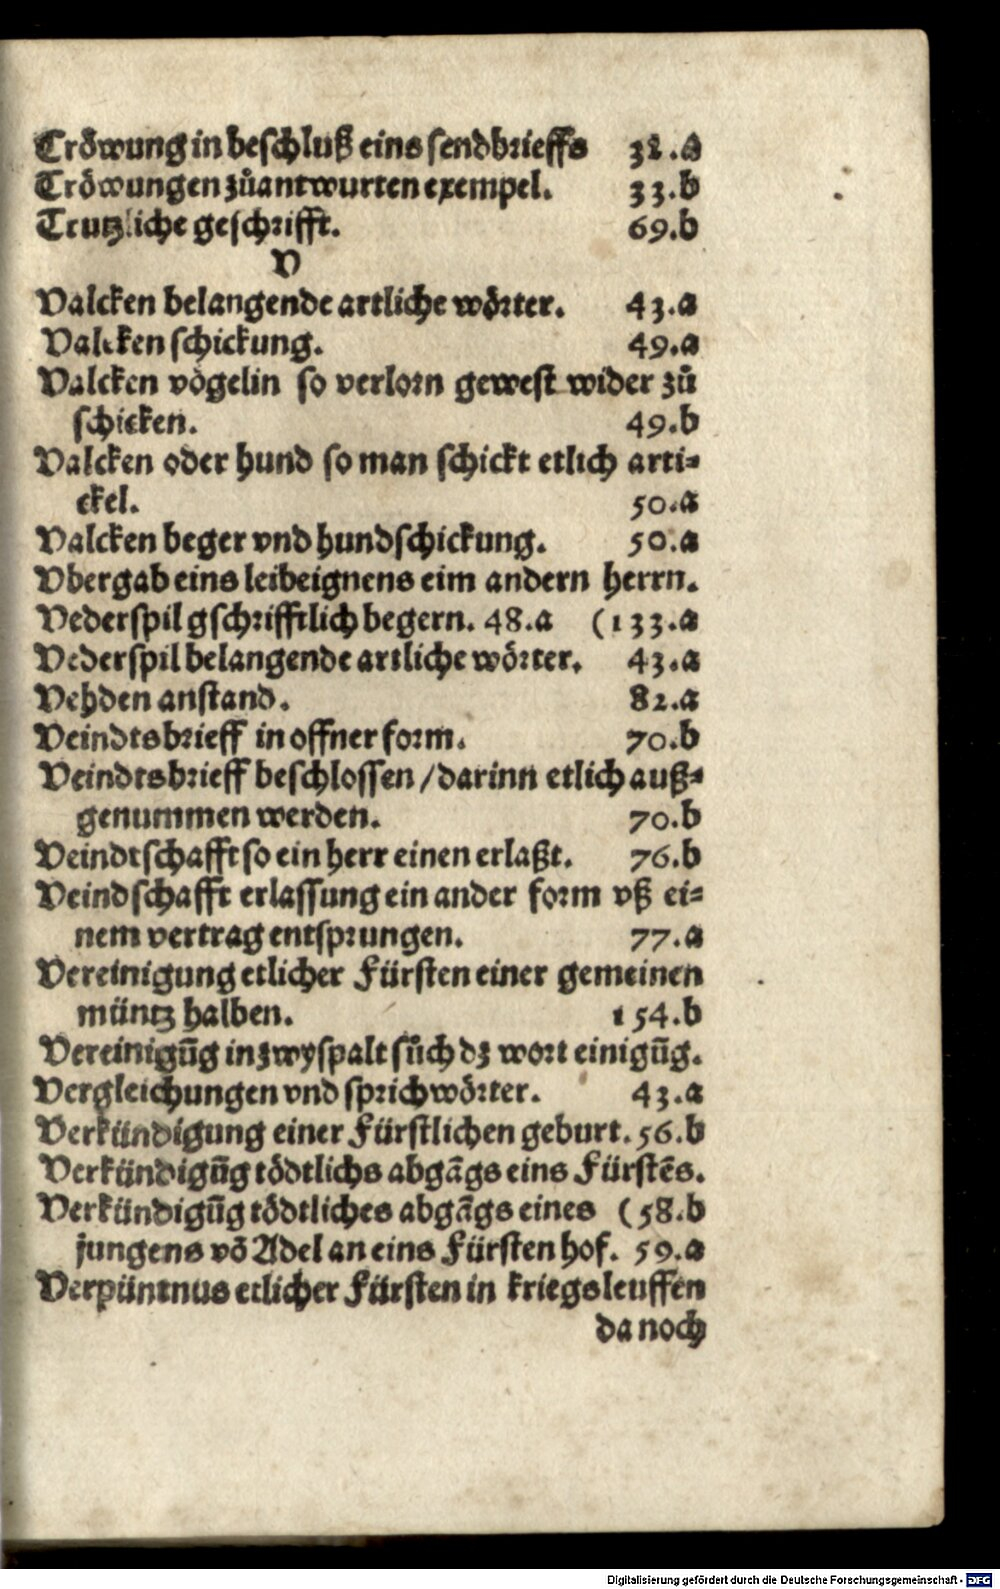 Tröwung in beschluß eins sendbrieffs 32.a
Tröwungen zůantwurten exempel. 33.b
Trutzliche geschrifft. 69.b
V
Valcken belangende artliche wörter. 43.a
Valcken schickung. 49.a
Valcken vögelin so verlorn gewest wider zů
schicken. 49.b
Valcken oder hund so man schickt etlich arti⸗
ckel. 50.a
Valcken beger vnd hundschickung. 50.a
Vbergab eins leibeignens eim andern herrn.
Vederspil gschrifftlich begern. 48.a (133.a
Vederspil belangende artliche wörter. 43.a
Vehden anstand. 82.a
Veindtsbrieff in offner form. 70.b
Veindtsbrieff beschlossen / darinn etlich auß⸗
genummen werden. 70.b
Veindtschafft so ein herr einen erlaßt. 76.b
Veindschafft erlassung ein ander form vß ei⸗
nem vertrag entsprungen. 77.a
Vereinigung etlicher Fürsten einer gemeinen
müntz halben. 154.b
Vereinigūg inzwyspalt sůch dz wort einigūg.
Vergleichungen vnd sprichwörter. 43.a
Verkündigung einer Fürstlichen geburt. 56.b
Verkündigūg tödtlichs abgāgs eins Fürstēs.
Verkündigūg tödtliches abgāgs eines (58.b
jungens vō Adel an eins Fürsten hof. 59.a
Verpüntnus etlicher Fürsten in kriegsleuffen
da noch
Digitalisierung gefördert durch die Deutsche Forschungsgemeinschaft - DFG